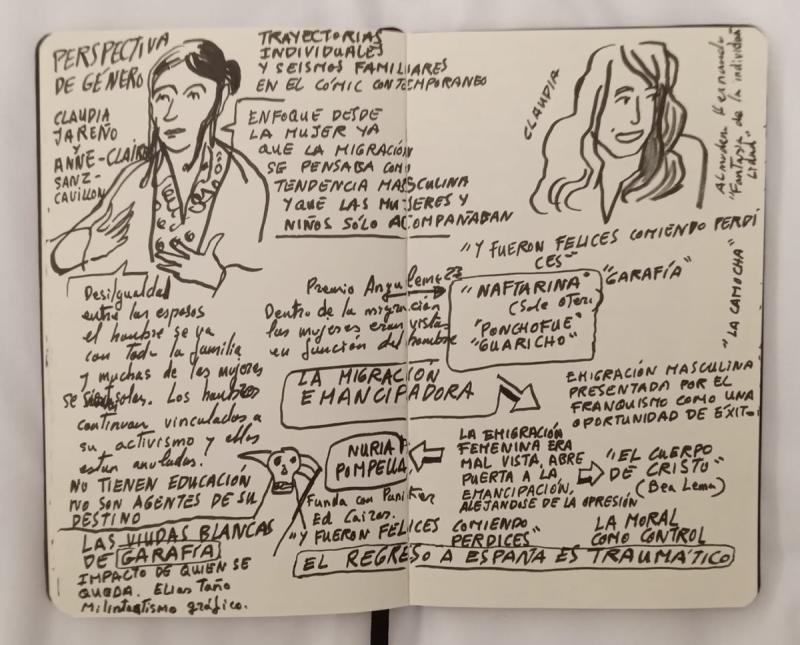 PERSPECTIVA
DE GÉNERO
CLAUDIA
JAREÑO
Y
ANNE-CLAIRE
SANZ-
GAVILLON
TRAYECTORIAS
INDIVIDUALES
Y SEISMOS FAMILIARES
EN EL CÓMIC CONTEMPORANEO
ENFOQUE DESDE
LA MUJER YA
QUE LA MIGRACIÓN
SE PENSABA COMO
TENDENCIA MASCULINA
Y QUE LAS MUJERES Y
NIÑOS SÓLO ACOMPAÑABAN
Desigualdad
entre los esposos
el hombre se va
con toda la familia
y muchas de las mujeres
se solas. Los hombres
continuan vinculados a
su activismo y ellas
estan anuladas.
NO TIENEN EDUCACIÓN
NO SON AGENTES DE SU
DESTINO
LAS VIUDAS BLANCAS
DE GARAFÍA
IMPACTO DE QUIEN SE
QUEDA. Elias Taño
gráfico.
Premio Angulema 23
Dentro de la migración
las mujeres eran vistas
en función del hombre
LA MIGRACIÓN
EMANCIPADORA
NURIA P.
POMPELLA
Funda con
Ed
"Y FUERON FELICES COMIENDO
PERDICES"
EL REGRESO A ESPAÑA ES TRAUMÁTICO
CLAUDIA
Almudena Hernando
"Fantasía de la individua
lidad"
"Y FUERON FELICES COMIENDO PERDI
CES"
"NAFTARINA"
(Sole Otero
"PONCHOFUE"
"GUARICHO"
"GARAFÍA"
"LA CAMOCHA"
EMIGRACIÓN MASCULINA
PRESENTADA POR EL
FRANQUISMO COMO UNA
OPORTUNIDAD DE ÉXITO.
LA EMIGRACIÓN
FEMENINA ERA
MAL VISTA, ABRE
PUERTA A LA
EMANCIPACIÓN,
ALEJÁNDOSE DE LA OPRESIÓN
"EL CUERPO
DE CRISTO"
(Bea Lema)
LA MORAL
COMO CONTROL